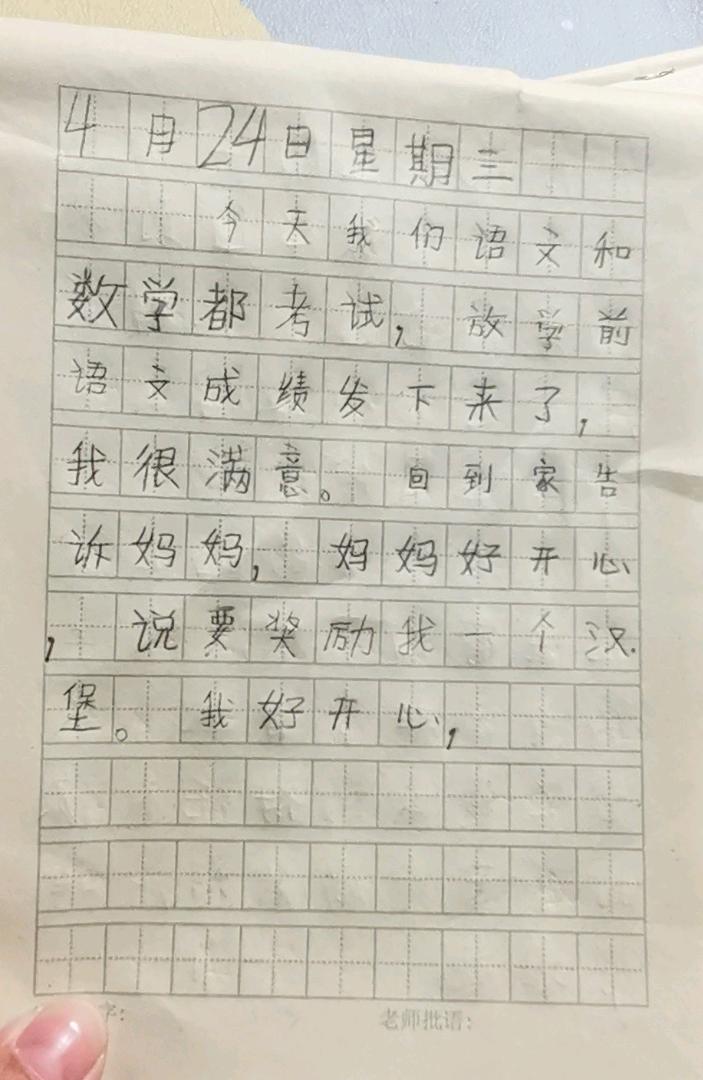 4月24日星期三
今天我们语文和
数学都考试，放学前
语文成绩发下来了，
我很满意。回到家告
诉妈妈，妈妈好开心
，说要奖励我一个汉
堡。我好开心，
字：
老师批语：